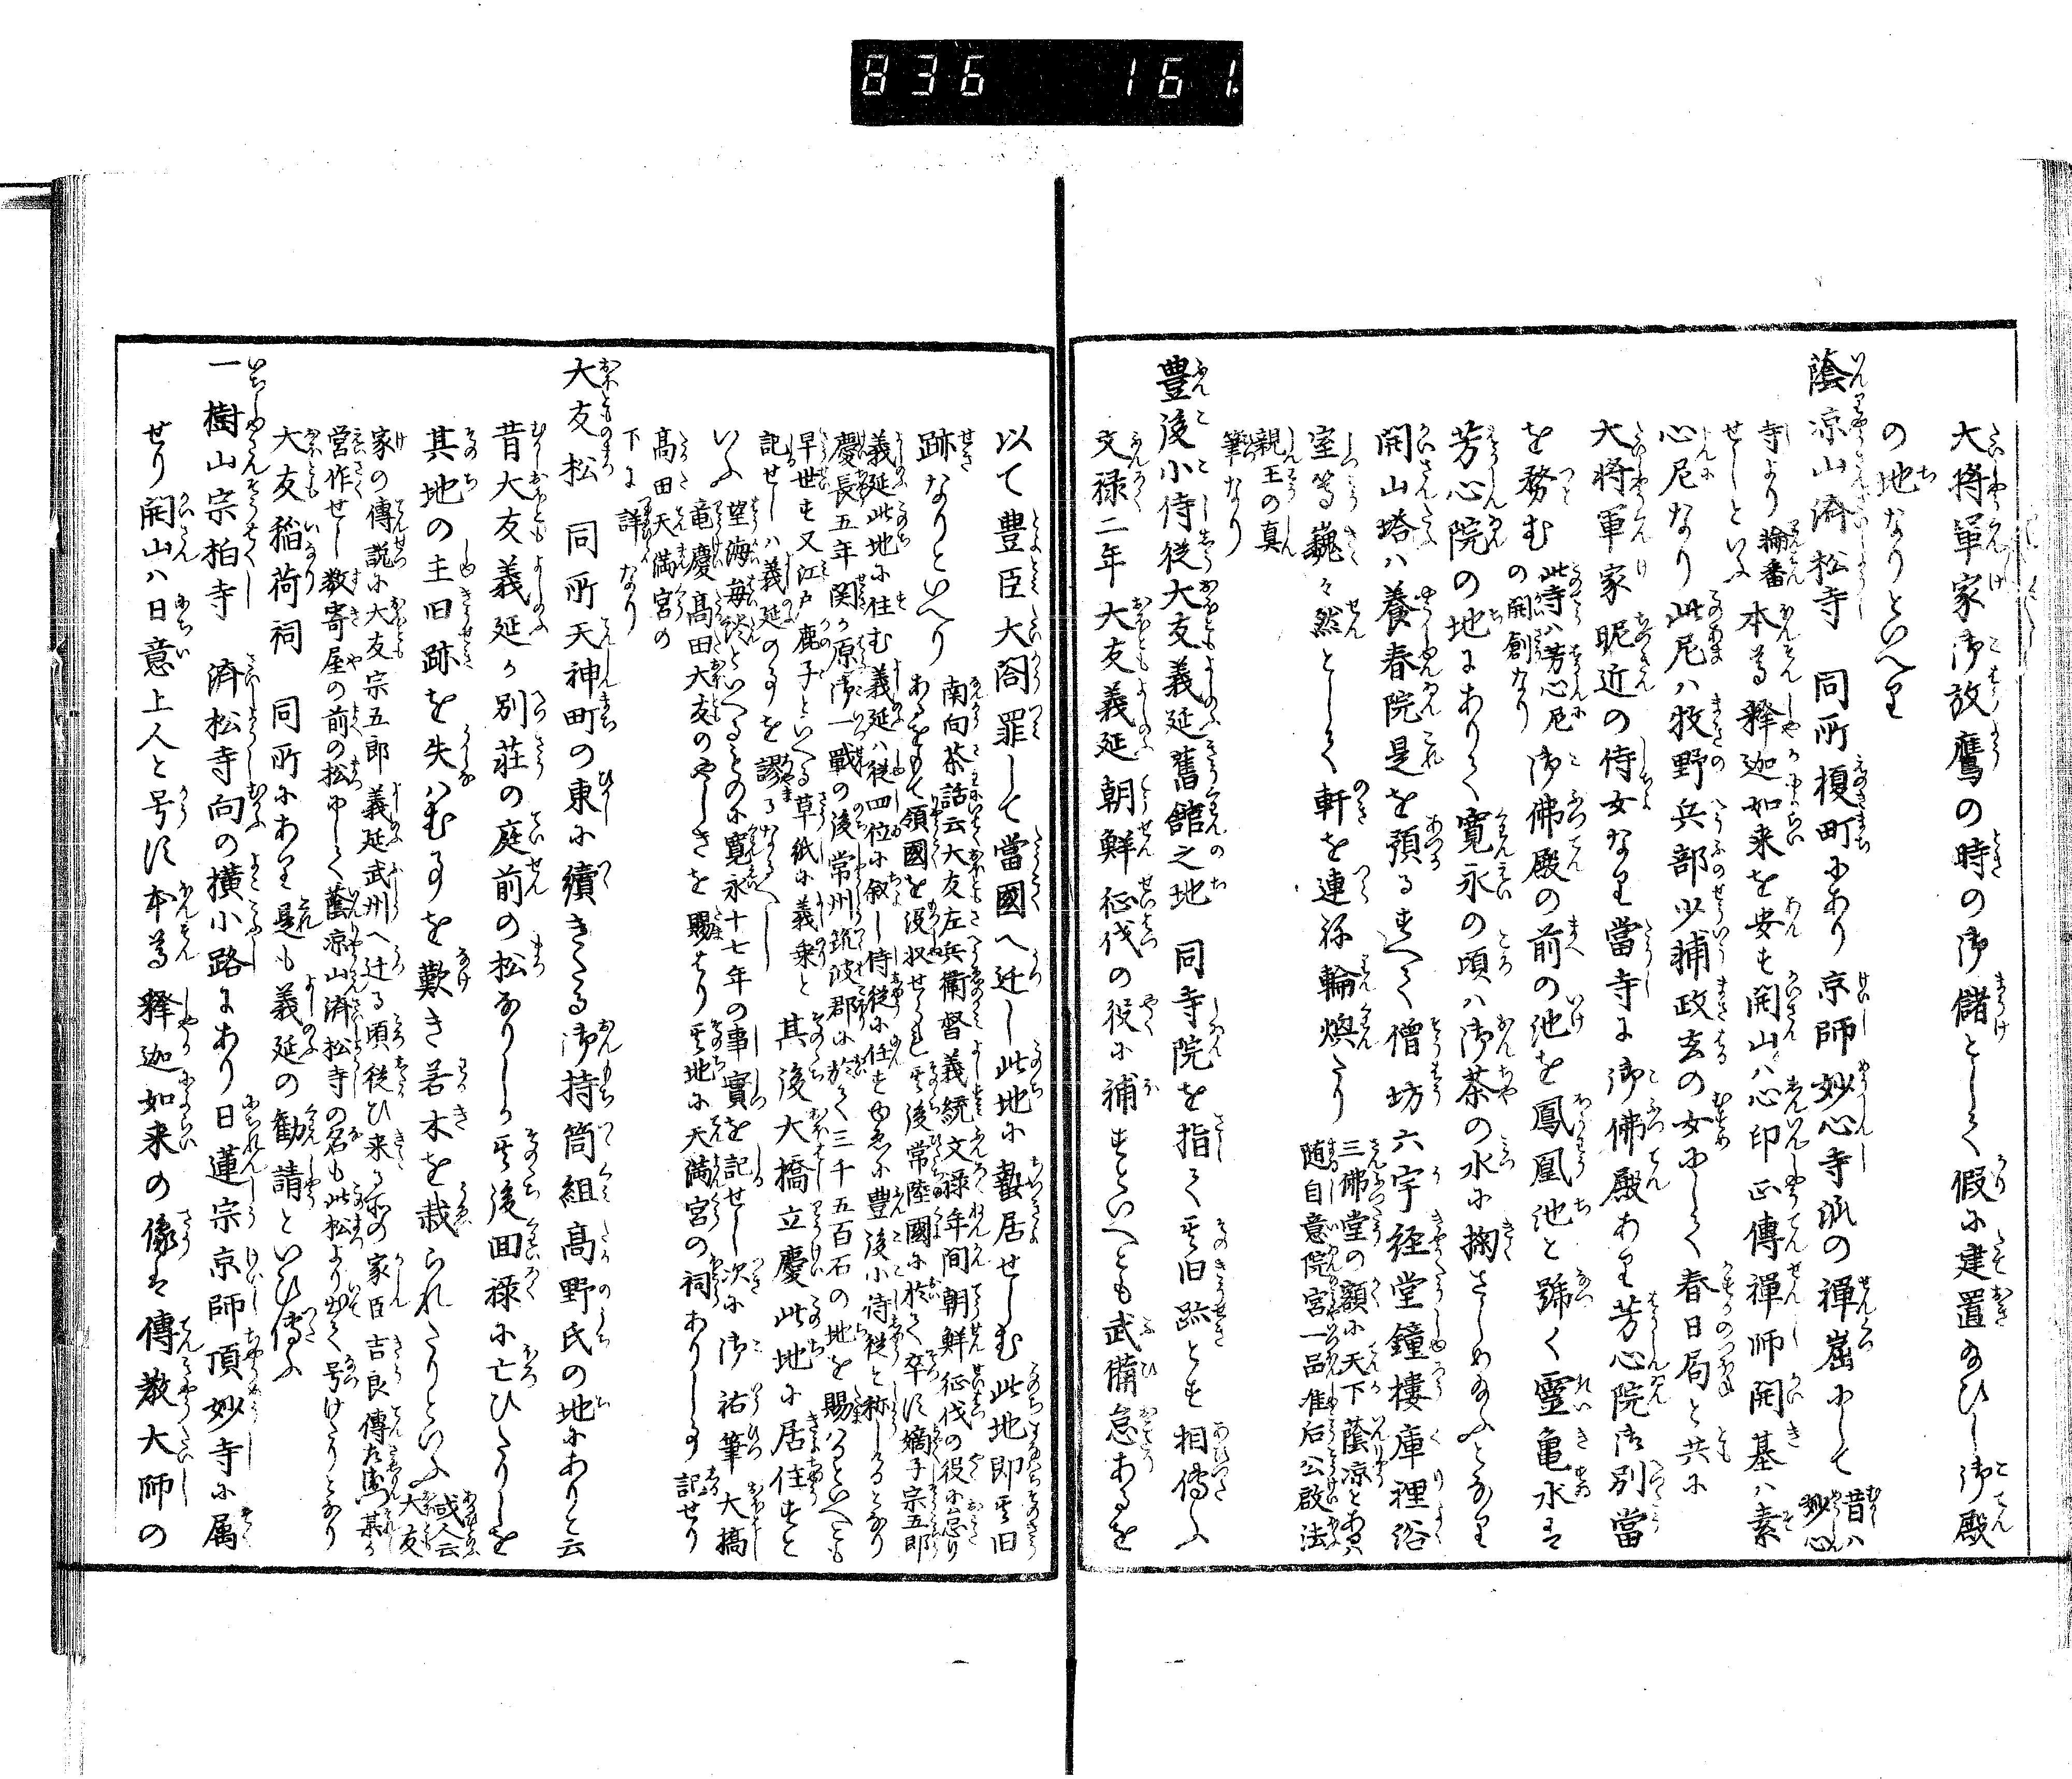 836 161
大将軍家御放鷹の時の御儲として假に建置給ひし御殿
の地なりといへり
蔭凉山済松寺 同所榎町にあり京師妙心寺派の禪崫にして昔ハ妙心
寺より輪番せしといふ本尊釋迦如来を安す開山ハ心印正傳禪師開基ハ素
心尼なり此尼ハ牧野兵部少輔政玄の女にして春日局と共に
大将軍家昵近の侍女なり當寺に御佛殿あり芳心院御別當
を務む此寺ハ芳心尼の開創なり御佛殿の前の池を鳳凰池と號く靈亀水は
芳心院の地にありて寛永の頃ハ御茶の水に掬さしめ給ふとなり
開山塔ハ養春院是を預るすへて僧坊六宇経堂鐘樓庫裡浴
室等巍々然として軒を連ね輪煥たり三佛堂の額に天下蔭凉とあるハ
随自意院宮一品准后公啟法
親王の真
筆なり
豊後小侍従大友義延舊館之地 同寺院を指て其旧跡とす相傳ふ
文禄二年大友義延朝鮮征伐の役に補すといへとも武備怠あるを
以て豊臣大閤罪して當國へ迁し此地に蟄居せしむ此地即其旧
跡なりといへり南向茶話云大友左兵衛督義統文禄年間朝鮮征伐の役に怠り
あるをもて領國を没収せられ其後常陸國に於て卒す嫡子宗五郎
義延此地に住む義延ハ従四位に叙し侍従に任すゆゑに豊後小侍従と称しけるとなり
慶長五年関か原御一戰の後常州筑波郡に於て三千五百石の地を賜ハるといへとも
早世す又江戸鹿子といへる草紙に義乗と
記せしハ義延の事を謬るなるへし其後大橋立慶此地に居住すと
いふ望海毎談といへるものに寛永十七年の事實を記せし次に御祐筆大橋
竜慶高田大友のやしきを賜はり其地に天満宮の祠ありし事記せり
高田天満宮の
下に詳なり
大友松 同所天神町の東に續きたる御持筒組高野氏の地にありと云
昔大友義延か別荘の庭前の松なりしか其後回禄に亡ひたりしを
其地の主旧跡を失ハむ事を歎き若木を栽られたりといふ或人云大友
家の傳説に大友宗五郎義延武州へ迁る頃従ひ来る所の家臣吉良傳左衛門某か
営作せし数寄屋の前の松にして蔭凉山済松寺の名も此松より出て号けたりとなり
大友稲荷祠 同所にあり是も義延の勧請といひ傳ふ
一樹山宗柏寺 済松寺向の横小路にあり日蓮宗京師頂妙寺に属
せり開山ハ日意上人と号す本尊釋迦如来の像は傳教大師の